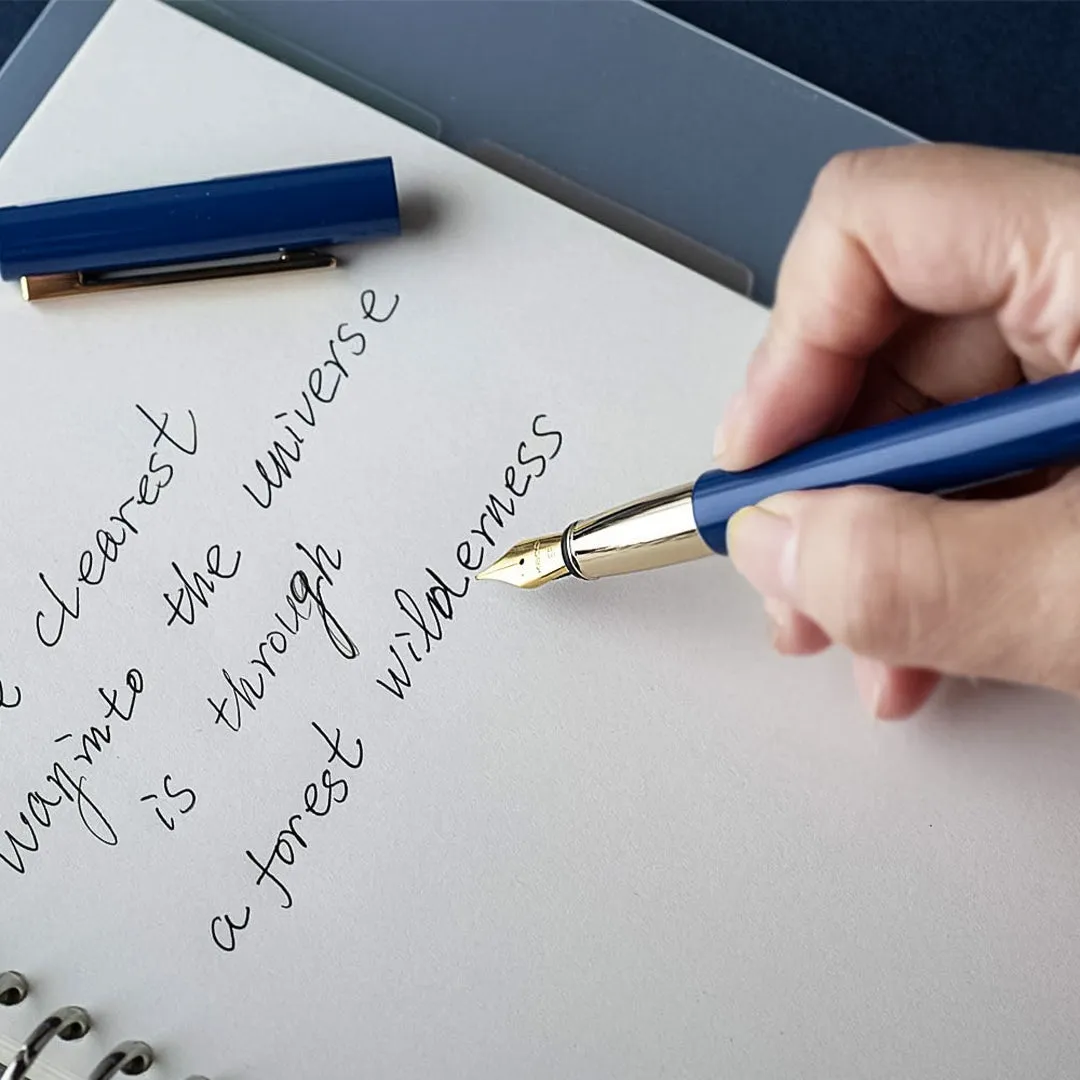 clearest
way into the universe
is through
a forest wilderness